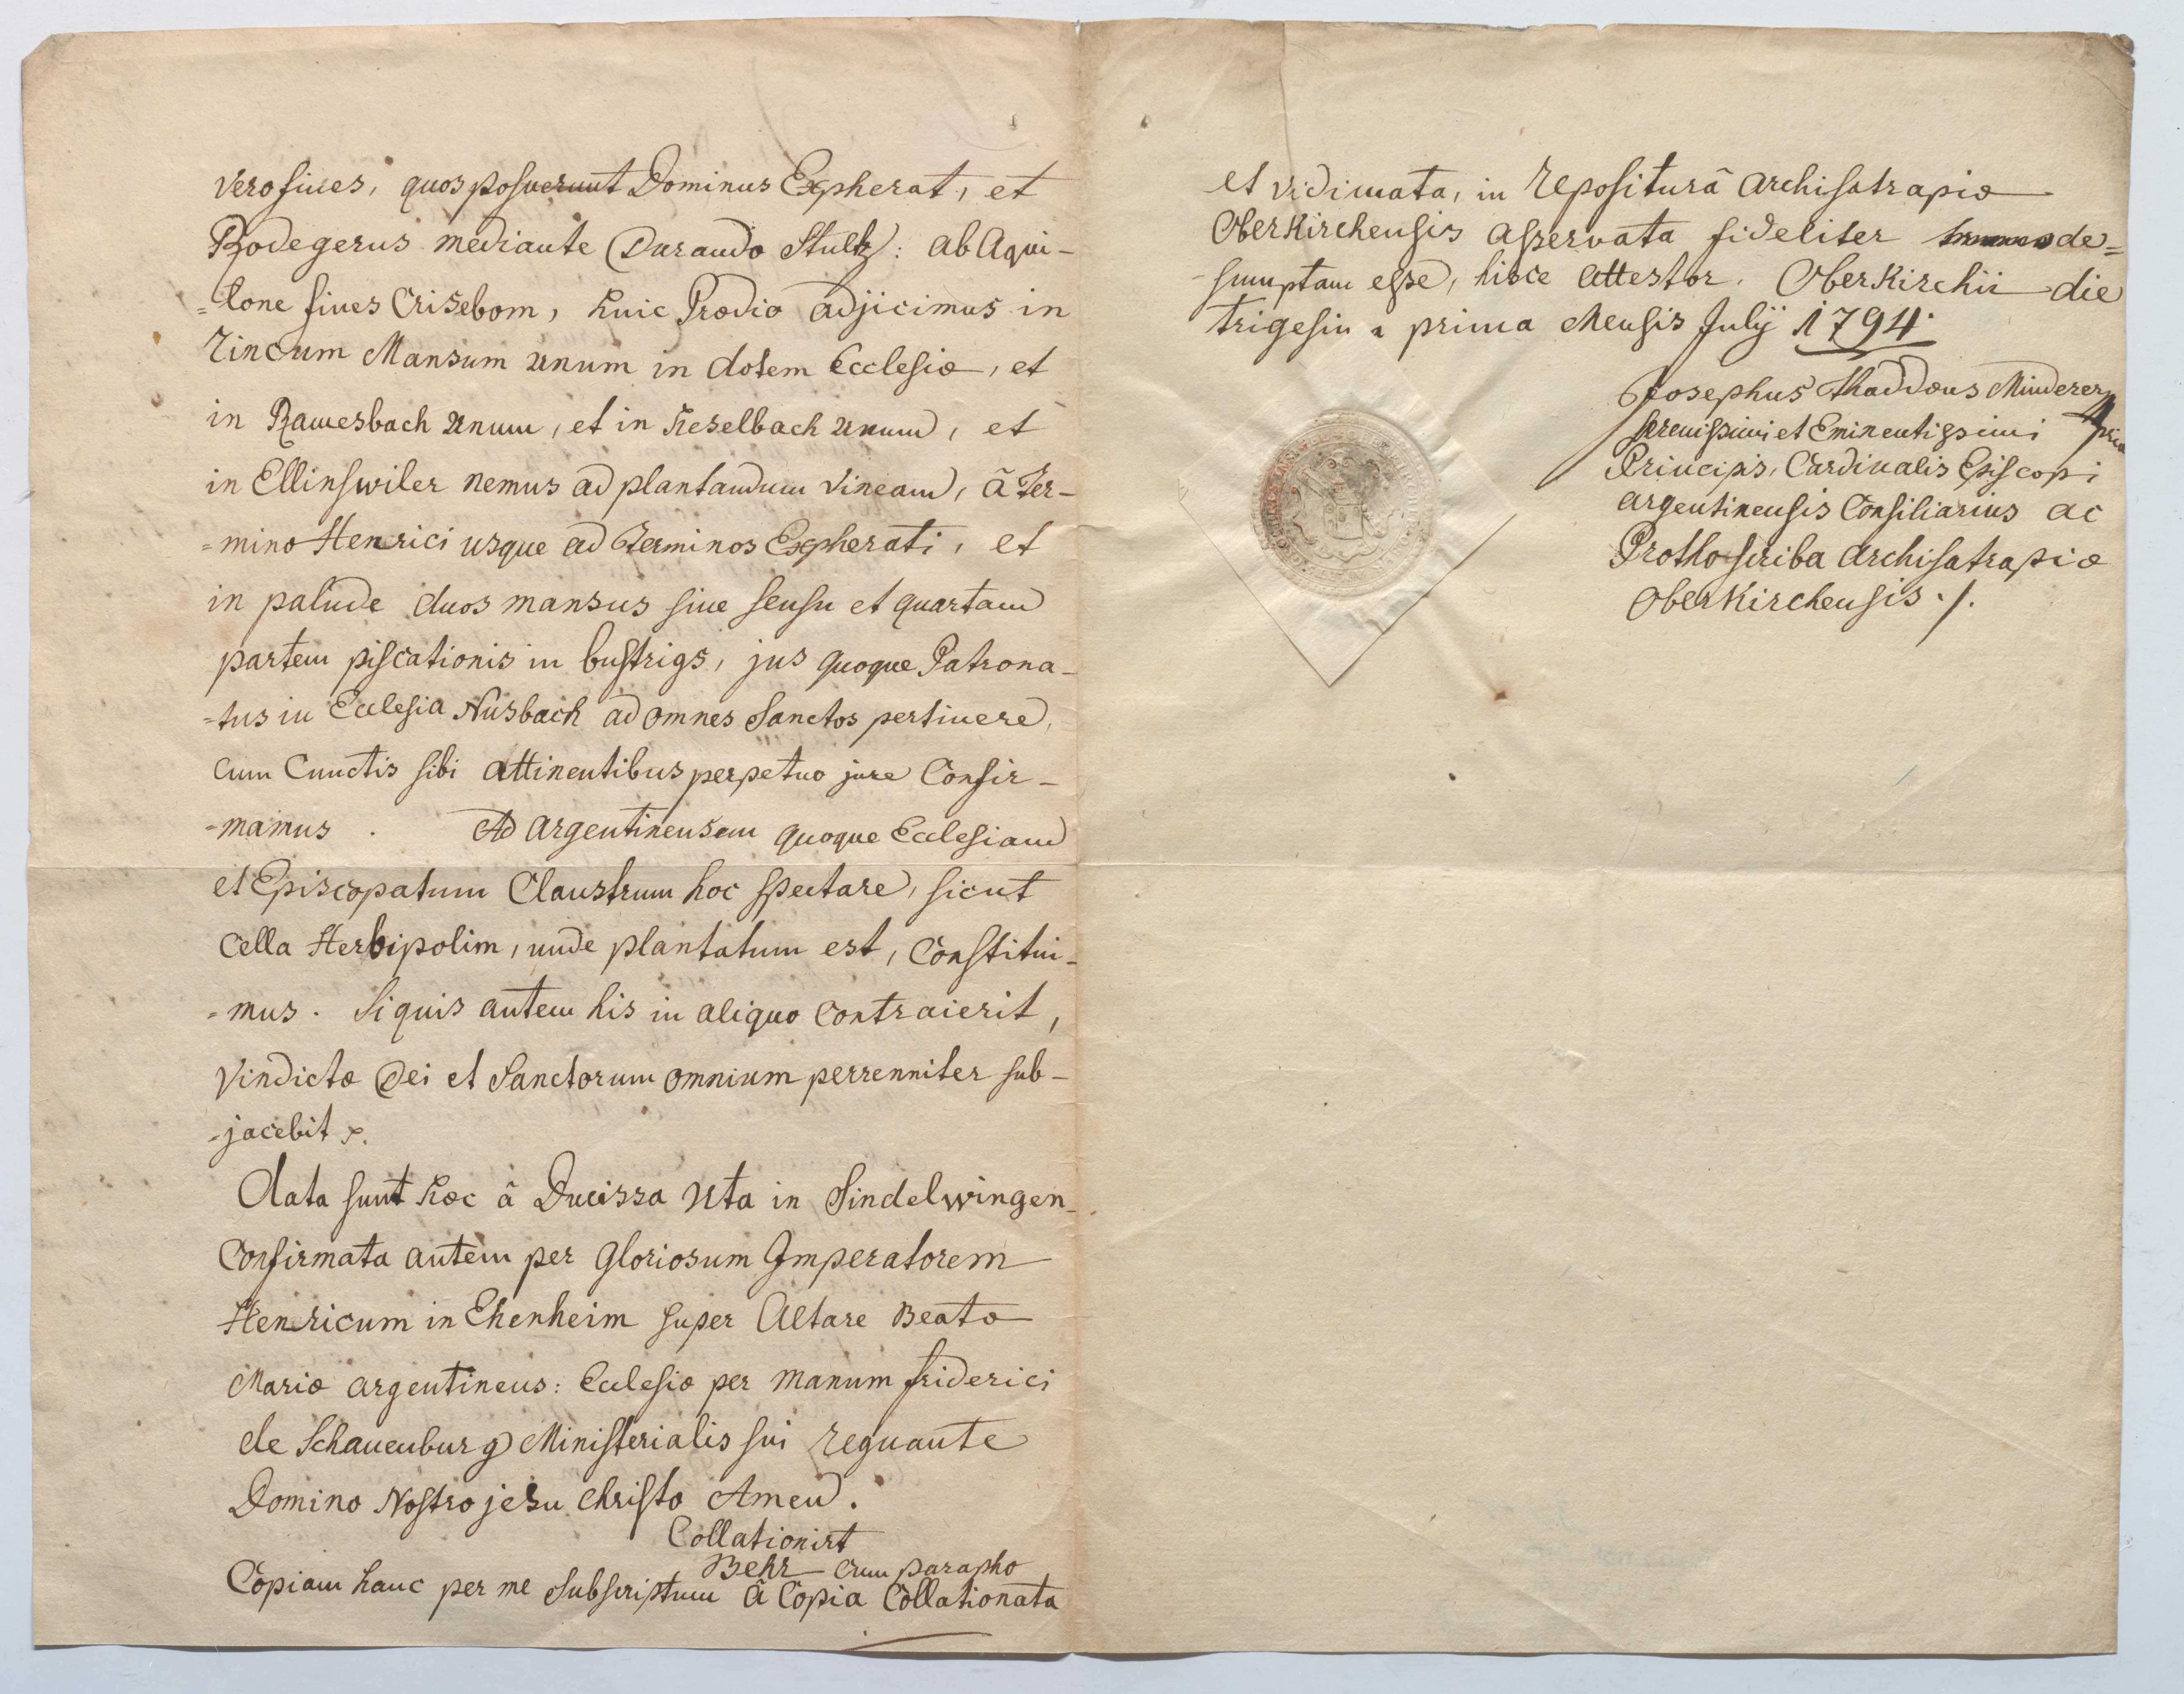 vero fines, quos posuerunt Dominus Expherat, et
Rodegerus mediante Durando Stultz: ab Aqui-
=lone fines Crisebom, huic Prædio adjicimus in
Zincum Mansum unum in dotem Ecclesiæ, et
in Ramesbach unum, et in Keselbach unum, et
in Ellinswiler nemus ad plantandum vineam, â Ter-
=mino Henrici usque ad Terminos Expherati, et
in palude duos mansus sine sensu et quartam
partem piscationis in bustrigs, jus quoque Patrona-
=tus in Ecclesia Nusbach ad omnes Sanctos pertinere,
cum Cunctis sibi attinentibus perpetuo jure Confir-
-mamus. Ad argentinensem quoque Ecclesiam
et Episcopatum Claustrum hoc spectare, sicut
Cella Herbipolim, unde plantatum est, Constitui-
=mus. Si quis autem his in aliquo Contraierit,
Vindictæ Dei et Sanctorum omnium perrenniter sub-
-jacebit
Data sunt hæc â Ducissa Uta in Sindelwingen
Confirmata autem per Gloriosum Imperatorem
Henricum in Ehenheim super Altare Beatæ
Mariæ argentinens: Ecclesiæ per manum friderici
de Schauenburg Ministerialis sui regnante
Domino Nostro jesu Christo Amen.
Collationirt
Behr cum parapho
Copiam hanc per me subscriptum â Copia Collationata
et vidimata, in repositurâ archisatrapiæ
Oberkirchensis asservata fideliter de=
-sumptam esse, hisce attestor. Oberkirchii die
trigesima prima Mensis Julÿ 1794.
Josephus Thaddæus Minderer
serenissimi et Eminentissimi
Principis, Cardinalis Episcopi
argentinensis Consiliarius ac
Protho scriba archisatrapiæ
Oberkirchensis ./.